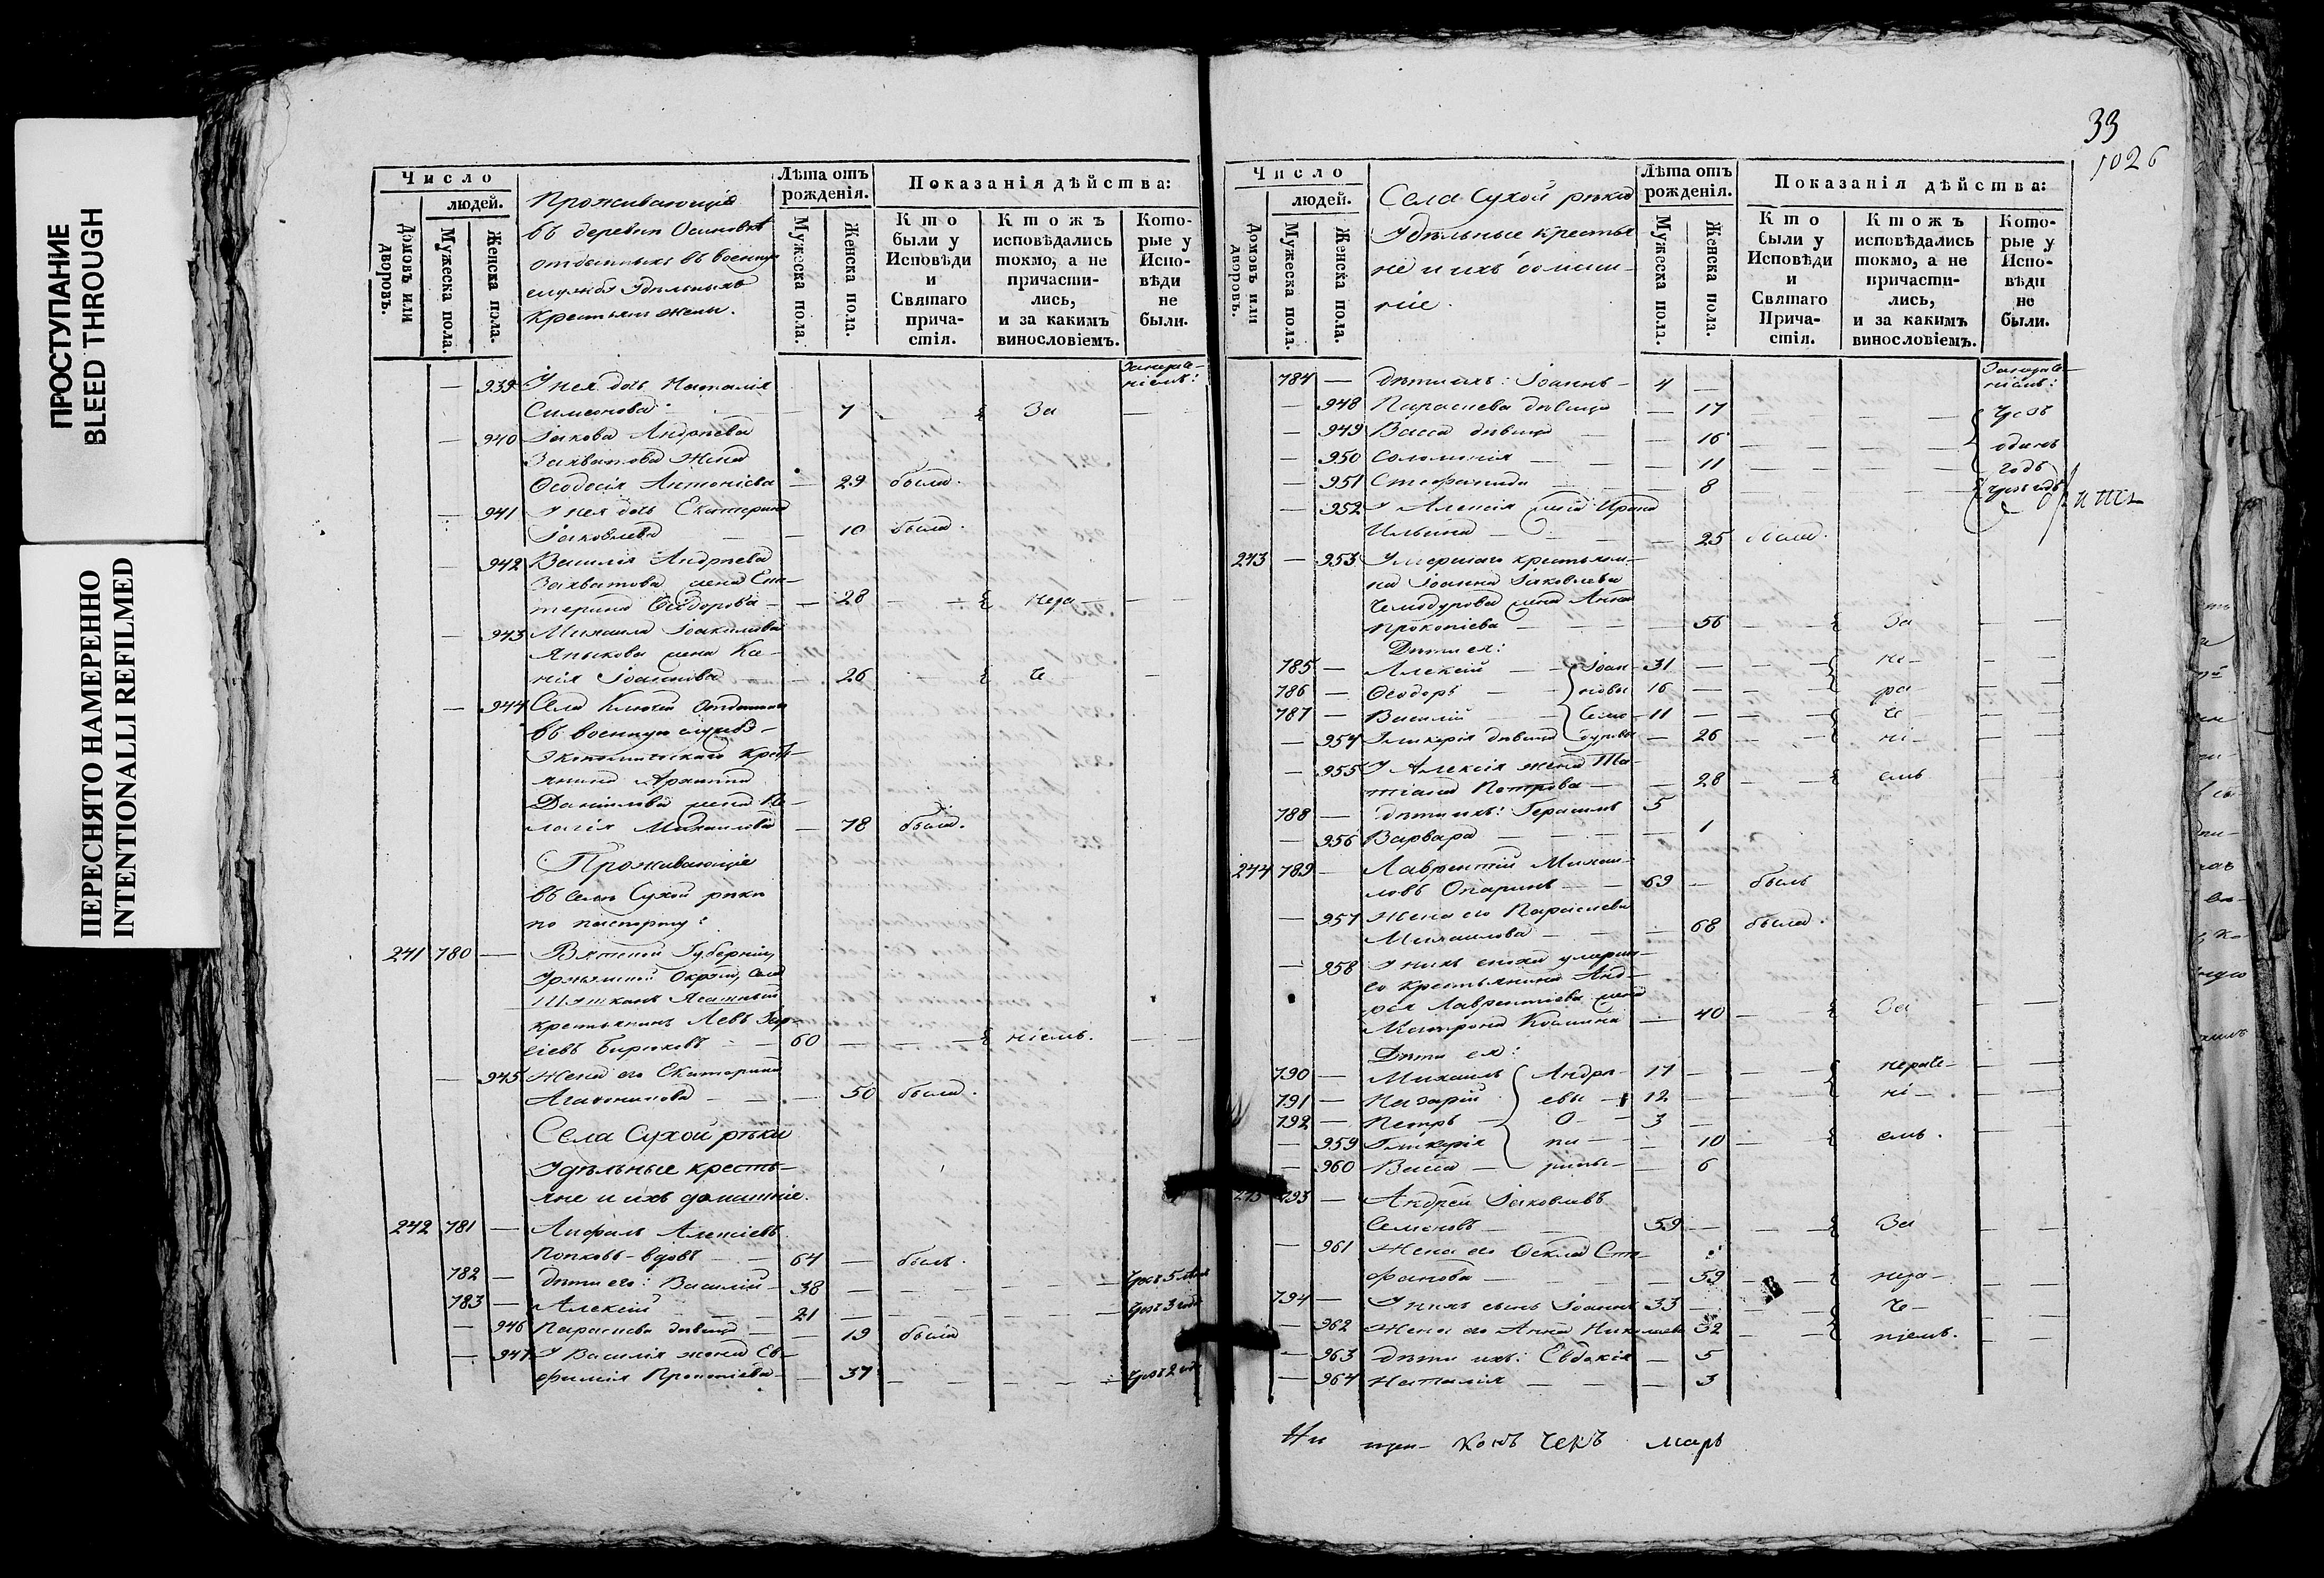 ПРОСТУПАНИЕ
BLEED THROUGH
ПЕРЕСНЯТО НАМЕРЕННО
INTENTIONALLI REFILMED
Число
людей.
Домовъ или дворовъ.
Мужеска пола.
Женска пола.
Проживающія
въ деревнѣ Осиновкѣ
отданныхъ въ военную
службу Удѣльныхъ
Крестьянъ жены.
Лѣта отъ рожденія.
Мужеска пола.
Женска пола.
Показанія дѣйства:
Кто были у Исповѣди и Святаго причастія.
Ктожъ исповѣдались токмо, а не причастились, и за какимъ винословіемъ.
Которые у Исповѣди не были.
— 939 У нея дочь Наталія
Симеонова — 7 — За —
— 940 Іакова Андреева
Захватова Жена
Ѳеодосія Антоніева — 29 была.
— 941 У нея дочь Екатерина
Іаковлева — 10 была.
— 942 Василія Андреева
Захватова жена Ека-
терина Ѳеодорова — 28 — нера —
— 943 Михаила Іоакимова
жена Ксе-
нія Іоаннова — 26 — че —
— 944 Села Ключей отданнаго
въ военную службу
Экономическаго крестья-
янина Архиппа
Данилова жена Пе-
лагія Михаилова — 78 была.
Проживающіе
въ селѣ Сухой рѣки
по паспорту:
241 780 — Вятской Губерніи,
Уржумской Округи, Села
Ясашный
крестьянинъ Левъ
Бирюковъ — 60 — ніемъ.
— 945 Жена его Екатерина
Агафоникова — 50 была.
Села Сухой рѣки
Удѣльные кресть-
яне и ихъ домашніе.
242 781 — Анфалъ Алексіевъ
Попковъ - вдовъ — 67 — былъ.
782 — дѣти его: Василій — 38 — чрезъ 5 лѣтъ
783 — Алексій — 21 — чрезъ 3 года
— 946 Параскева дѣвица — 19 была
— 947 У Василія жена Ев-
фимія Прокопіева — 37 — чрезъ 2 года
33
1026
Число
людей.
Домовъ или дворовъ.
Мужеска пола.
Женска пола.
Села Сухой рѣки
Удѣльные крестья
не и ихъ домаш-
ніе.
Лѣта отъ рожденія.
Мужеска пола.
Женска пола.
Показанія дѣйства:
Кто были у Исповѣди и Святаго Причастія.
Ктожъ исповѣдались токмо, а не причастились, и за какимъ винословіемъ.
Которые у Исповѣди не были.
784 — дѣти ихъ: Іоаннъ — 4 —
— 948 Параскева дѣвица — 17 — чрезъ
— 949 Васса дѣвица — 16 — одинъ
— 950 Соломонія — 11 — годъ
— 951 Стефанида — 8 — чрезъ годъ
— 952 У Алексія жена Ирина
Ильина — 25 была.
243 — 953 Умершаго крестьяни-
на Іоанна Іаковлева
Чемодурова жена Анна
Прокопіева — 56 — За —
Дѣти ея:
785 — Алексій — Іоан- 31 — не —
786 — Ѳеодоръ — новы 16 — ра —
787 — Василій — Чемо- 11 — че —
— 954 Гликерія дѣвица дуровы — 26 — ні —
— 955 У Алексія жена Та-
тіана Петрова — 28 — емъ
788 — дѣти ихъ: Герасимъ 5
— 956 Варвара — 1
244 789 — Лаврентій Михаи-
ловъ Опаринъ — 69 — былъ
— 957 Жена его Параскева
Михаилова — 68 была.
— 958 У нихъ сноха умерша-
го крестьянина Анд-
рея Лаврентіева жена
Матрона Космина — 40 — За —
Дѣти ея:
790 — Михаилъ Андре- 17 — нераче —
791 — Назарій евы 12 — ні —
792 — Петръ О- 3 —
— 959 Гликерія па- — 10 — емъ.
— 960 Васса — рины — 6
245 793 — Андрей Іаковлевъ
Семеновъ — 59 — За —
— 961 Жена его Ѳекла Сте-
фанова — 59 — нера —
794 — У нихъ сынъ Іоаннъ 33 — че —
— 962 Жена его Анна Николаева 32 — ніемъ.
— 963 дѣти ихъ: Евдокія — 5
— 964 Наталія — 3